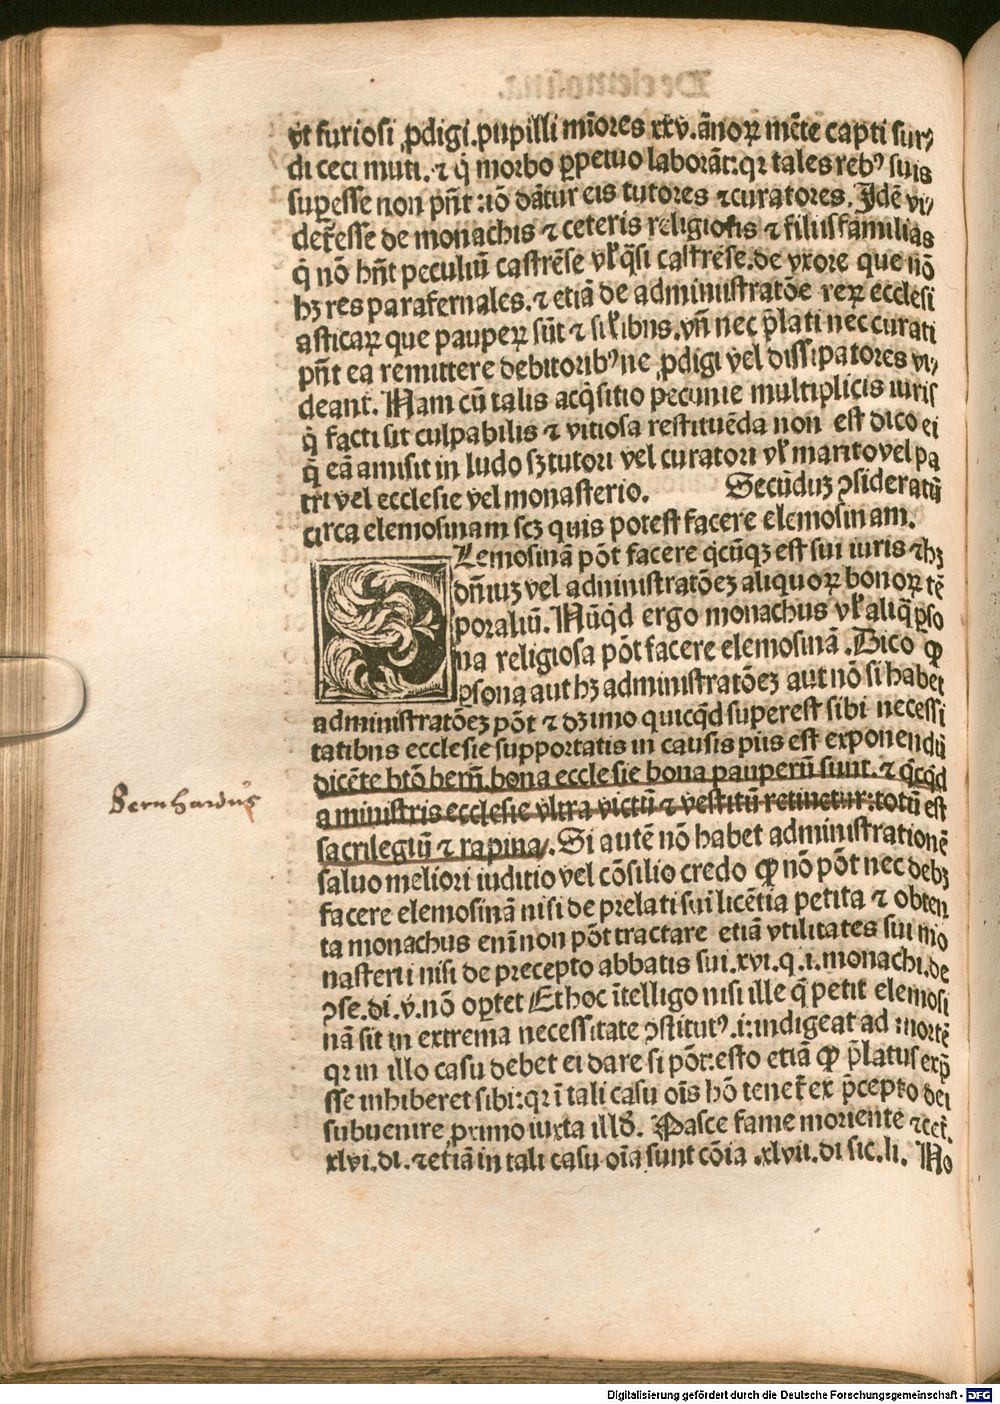 vt furiosi ꝓdigi.pupilli mīores xxv.ānoꝝ mēte capti sur⸗
di ceci muti.⁊ q̇ morbo ꝑpetuo laborāt:qꝛ tales rebꝰ suis
suꝑesse non pn̄t:iō dātur eis tutores ⁊curatores. Idē vi⸗
det̄esse de monachis ⁊ ceteris religiosis ⁊ filiisfamilias
q̇ nō hn̄t peculiū castrēse vl̓q̄si castrēse.de vxore que nō
hꝫ res parafernales.⁊ etiā de administratōe reꝝ ecclesi
asticaꝝ que pauperꝝ sūt ⁊ sil̓ibus.vn̄ nec p̄lati nec curati
pn̄t ea remittere debitoribꝰne ꝓdigi vel dissipatores vi⸗
deant̄. Nam cū talis acq̇sitio pecunie multiplicis iuris
q̇ facti sit culpabilis ⁊ vitiosa restituēda non est dico ei
q̇ eā amisit in ludo sꝫ tutori vel curatori vl̓ marito vel pa
tri vel ecclesie vel monasterio. Secūduꝫ ꝯsideratū
circa elemosinam scꝫ quis potest facere elemosinam.
ELemosinā pōt facere q̇cūqꝫ est sui iuris ⁊hꝫ
dn̄iuꝫ vel administratōeꝫ aliquoꝝ bonoꝝ tē
poraliū. Nūqd ergo monachus vl̓ aliq̄ ꝑso
na religiosa pōt facere elemosinā. Dico ꝙ
ꝑsona aut hꝫ administratōeꝫ aut nō si habet
administratōeꝫ pōt ⁊ dꝫ imo quicq̇d superest sibi necessi
tatibus ecclesie supportatis in causis piis est exponendū
dicēte btō bern̄.bona ecclesie bona pauperū sunt.⁊ q̇cq̇d
a ministris ecclesie vltra victū ⁊ vestitū retinetur:totū est
sacrilegiū ⁊ rapina. Si autē nō habet administrationē
saluo meliori iuditio vel cōsilio credo ꝙ nō pōt nec debꝫ
facere elemosinā nisi de prelati sui licētia petita ⁊ obten
ta monachus enī non pōt tractare etiā vtilitates sui mo
nasterii nisi de precepto abbatis sui.xvi.q.i.monachi.de
ꝯse.di.v.nō oꝑtet Et hoc ītelligo nisi ille q̇ petit elemosi
nā sit in extrema necessitate ꝯstitutꝰ.i:indigeat ad mortē
qꝛ in illo casu debet ei dare si pōt:esto etiā ꝙ p̄latus exp̄
sse inhiberet sibi:qꝛ ī tali casu oīs hō tenet̄ ex p̄cepto dei
subuenire ꝓximo iuxta illd̄. Pasce fame moriente ⁊cet̄.
xlvi.di.⁊etiā in tali casu oīa sunt cōia.xlvii.di sic.li. No
Bernhardus
Digitalisierung gefördert durch die Deutsche Forschungsgemeinschaft - DFG